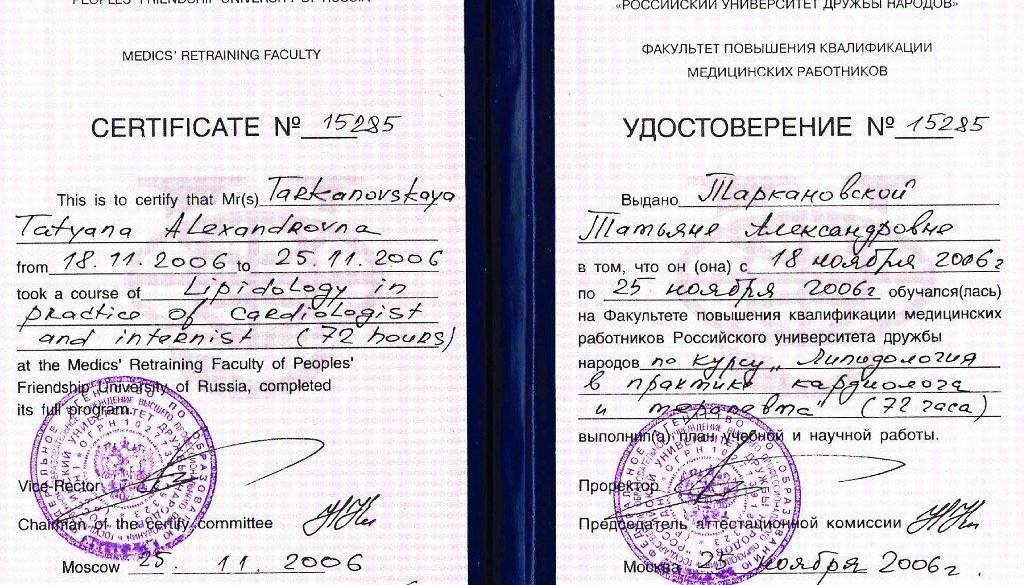 PEOPLES' FRIENDSHIP UNIVERSITY OF RUSSIA
MEDICS' RETRAINING FACULTY
CERTIFICATE № 15285
This is to certify that Mr(s) Tarkanovskaya
Tatyana Alexandrovna
from 18.11.2006 to 25.11.2006
took a course of Lipidology in
practice of cardiologist
and internist (72 hours)
at the Medics' Retraining Faculty of Peoples'
Friendship University of Russia, completed
its full program.
Vice-Rector
Chairman of the certify committee
Moscow 25. 11. 2006
«РОССИЙСКИЙ УНИВЕРСИТЕТ ДРУЖБЫ НАРОДОВ»
ФАКУЛЬТЕТ ПОВЫШЕНИЯ КВАЛИФИКАЦИИ
МЕДИЦИНСКИХ РАБОТНИКОВ
УДОСТОВЕРЕНИЕ № 15285
Выдано Таркановской
Татьяне Александровне
в том, что он (она) с 18 ноября 2006г
по 25 ноября 2006г обучался(лась)
на Факультете повышения квалификации медицинских
работников Российского университета дружбы
народов по курсу „Липидология
в практике кардиолога
и терапевта" (72 часа)
выполнил(а) план учебной и научной работы.
Проректор
Председатель аттестационной комиссии
Москва 25 ноября 2006г.